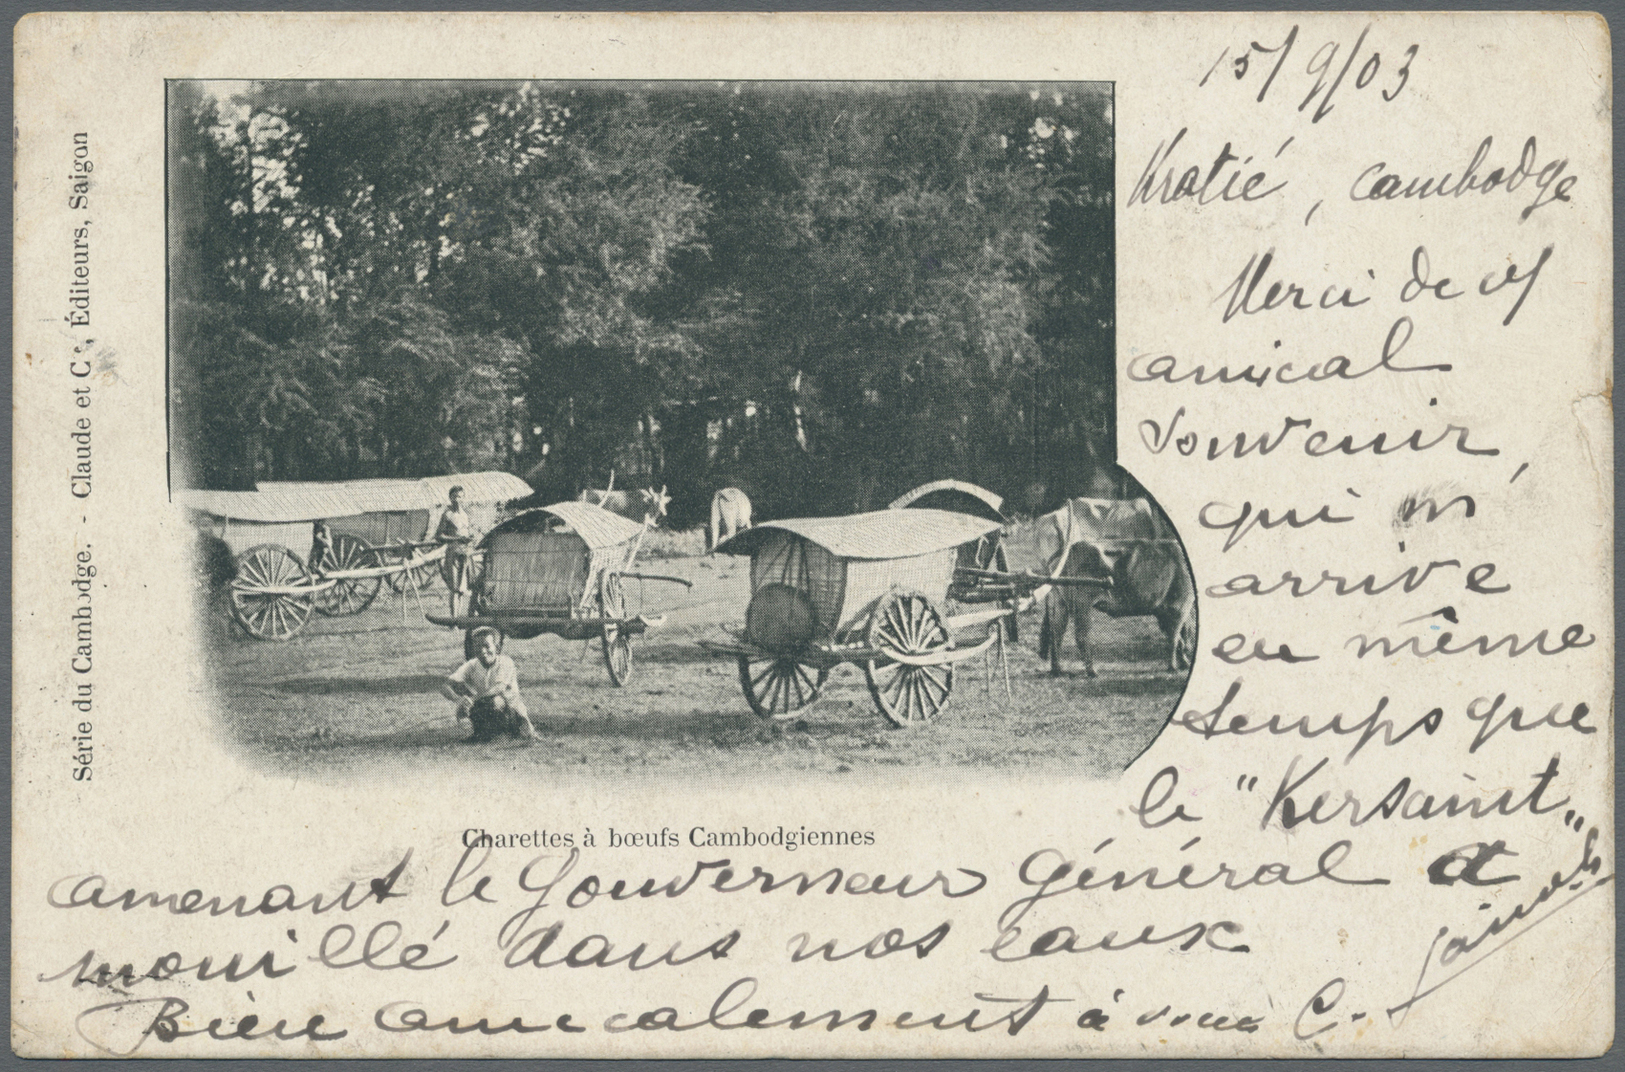 Série du Cambodge. - Claude et Cie, Éditeurs, Saigon
15/9/03
Kratié, cambodge
Merci de cet
amical
souvenir,
qui m'
arrive
en même
temps que
le "Kersaint"
Charettes à bœufs Cambodgiennes
amenant le Gouverneur Général a
mouillé dans nos eaux
Bien amicalement à vous C.